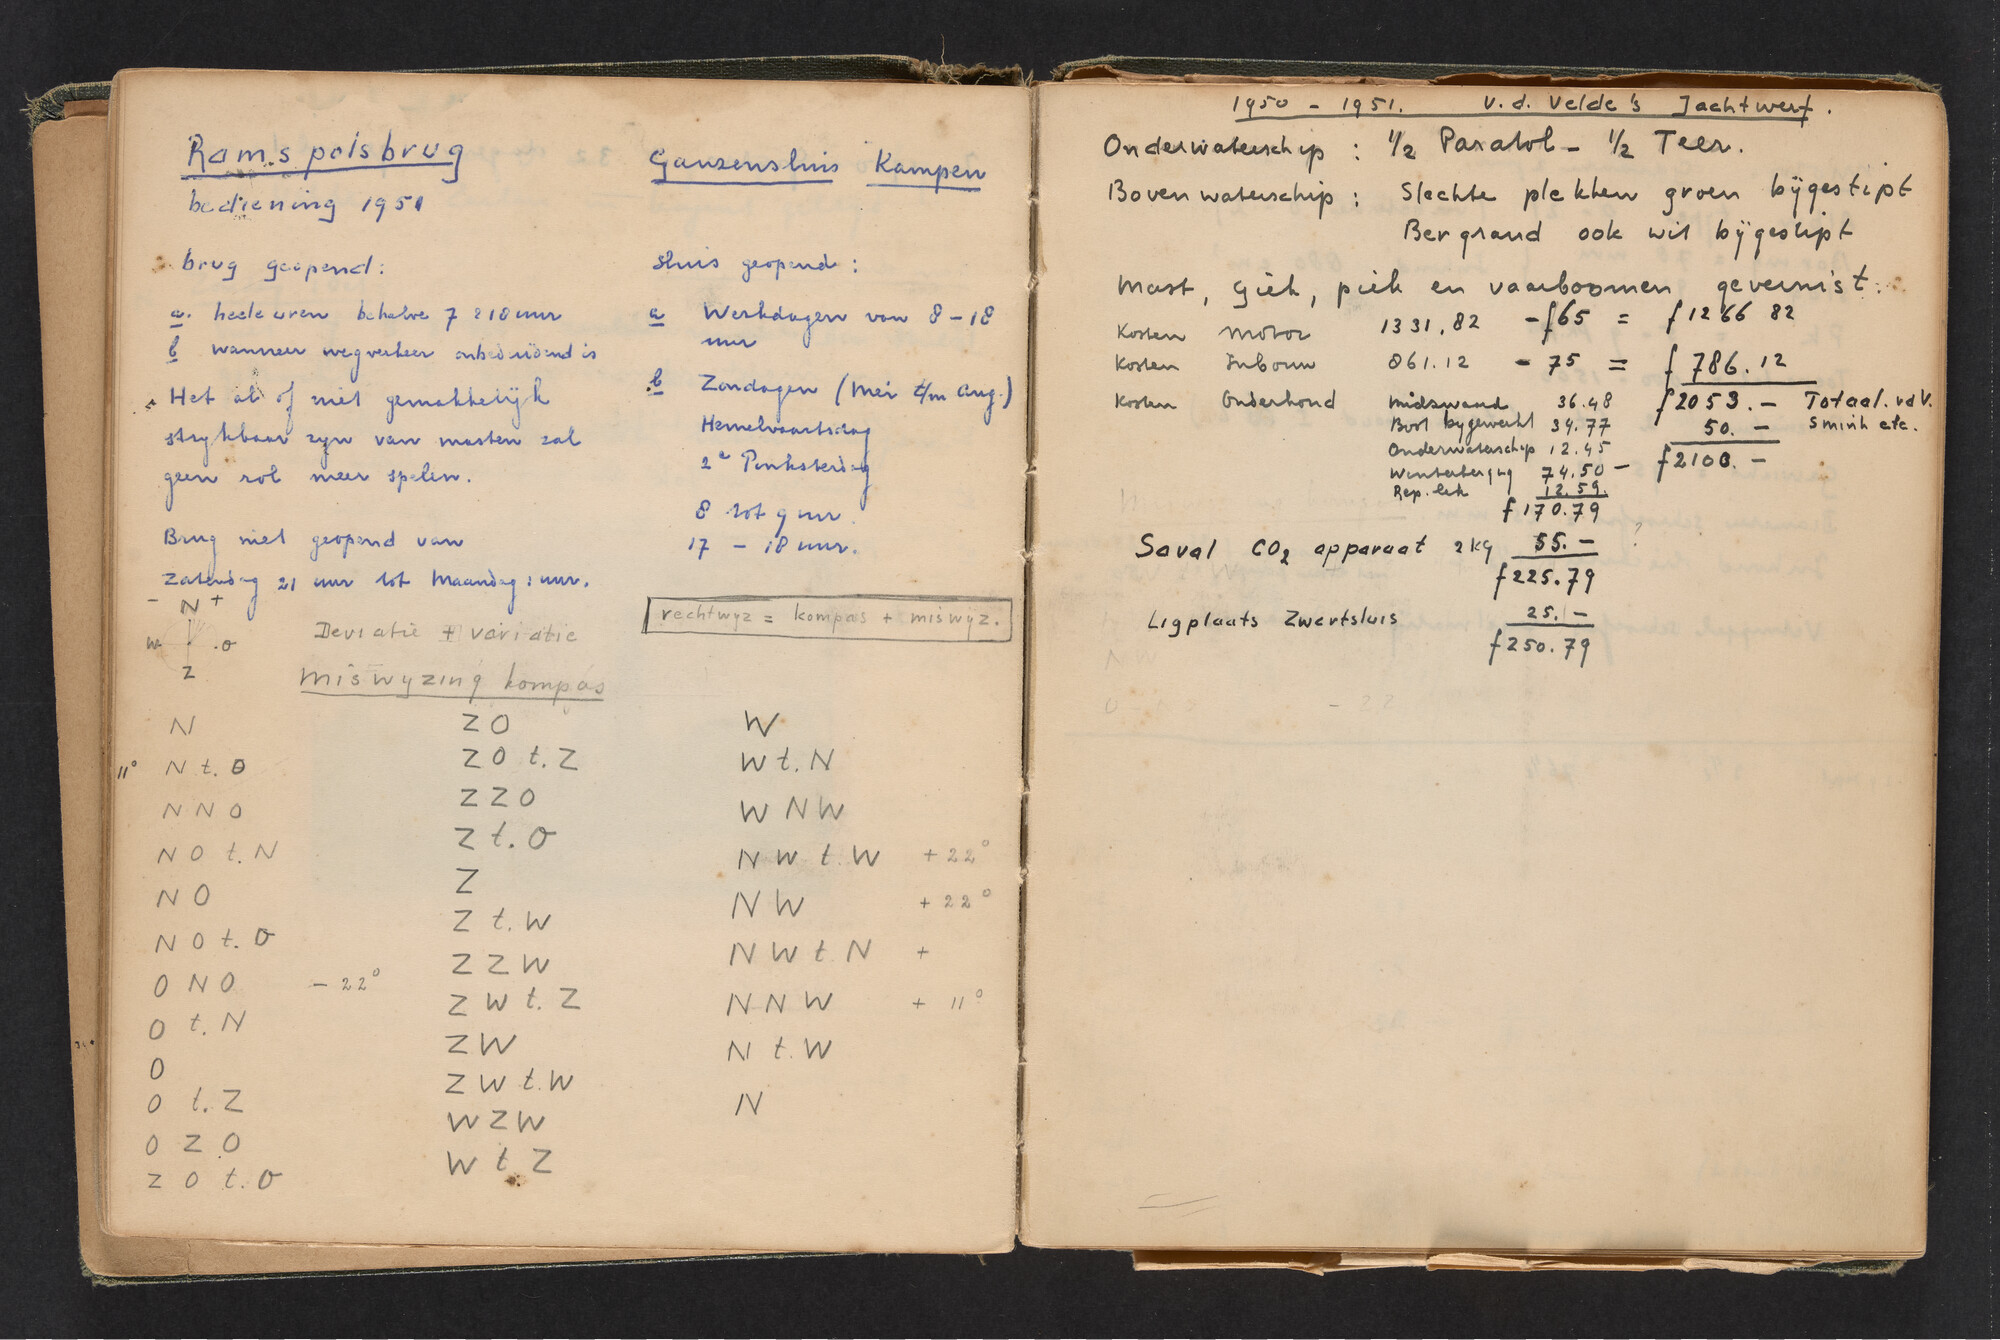 Ramspolsbrug
bediening 1951
brug geopend:
a. heele uren behalve 7 & 18 uur
b wanneer wegverkeer onbeduidend is
Het al of niet gemakkelijk
strykbaar zyn van masten zal
geen rol meer spelen.
Brug niet geopend van
Zaterdag 21 uur tot Maandag 1 uur.
Ganzensluis Kampen
sluis geopend:
a Werkdagen van 8 – 18
uur
b Zondagen (Mei t/m Aug.)
Hemelvaartsdag
2e Pinksterdag
8 tot 9 uur
17 – 18 uur.
– N +
W . O
Z
Deviatie + variatie
miswyzing kompas
rechtwyz = kompas + miswyz.
N
11° N t. O
N N O
N O t. N
N O
N O t. O
O N O – 22°
O t. N
O
O t. Z
O Z O
Z O t. O
Z O
Z O t. Z
Z Z O
Z t. O
Z
Z t. W
Z Z W
Z W t. Z
Z W
Z W t. W
W Z W
W t Z
W
W t. N
W N W
N W t. W + 22°
N W + 22°
N W t N +
N N W + 11°
N t. W
N
1950 – 1951. v. d. Velde's Jachtwerf.
Onderwaterschip : 1/2 Paratol – 1/2 Teer.
Bovenwaterschip : Slechte plekken groen bÿgestipt
Bergrand ook wit bÿgestipt
Mast, giek, piek en vaarboomen gevernist.
Kosten Motor 1331.82 – f65 = f 1266 82
Kosten Inbouw 861.12 – 75 = f 786.12
Kosten Onderhoud midzwaard 36.48 f2053.– Totaal. vdV.
Boot bygewerkt 34.77 50.– Smink etc.
Onderwaterschip 12.45
Winterberging 74.50 – f2100.–
Rep. lek 12.59
f 170.79
Saval CO2 apparaat 2kg 55.– ?
f225.79
Ligplaats Zwartsluis 25.–
f250.79